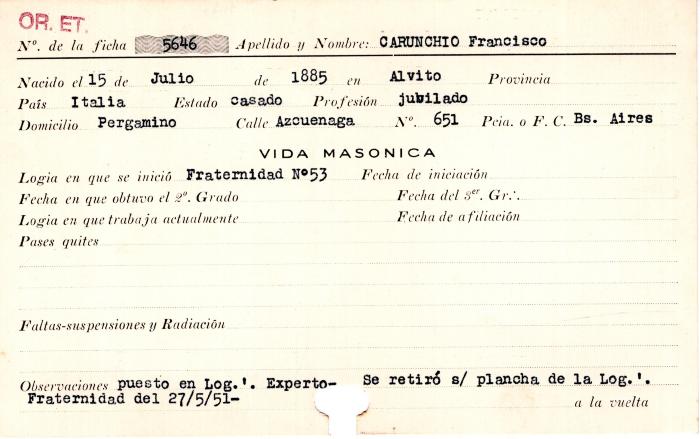 OR. ET.
Nº. de la ficha 5646 Apellido y Nombre: CARUNCHIO Francisco
Nacido el 15 de Julio de 1885 en Alvito Provincia
País Italia Estado casado Profesión jubilado
Domicilio Pergamino Calle Azcuenaga Nº. 651 Pcia. o F. C. Bs. Aires
VIDA MASONICA
Logia en que se inició Fraternidad Nº53 Fecha de iniciación
Fecha en que obtuvo el 2º. Grado Fecha del 3er. Gr.·.
Logia en que trabaja actualmente Fecha de afiliación
Pases quites
Faltas-suspensiones y Radiación
Observaciones puesto en Log.'. Experto- Se retiró s/ plancha de la Log.'.
Fraternidad del 27/5/51-
a la vuelta